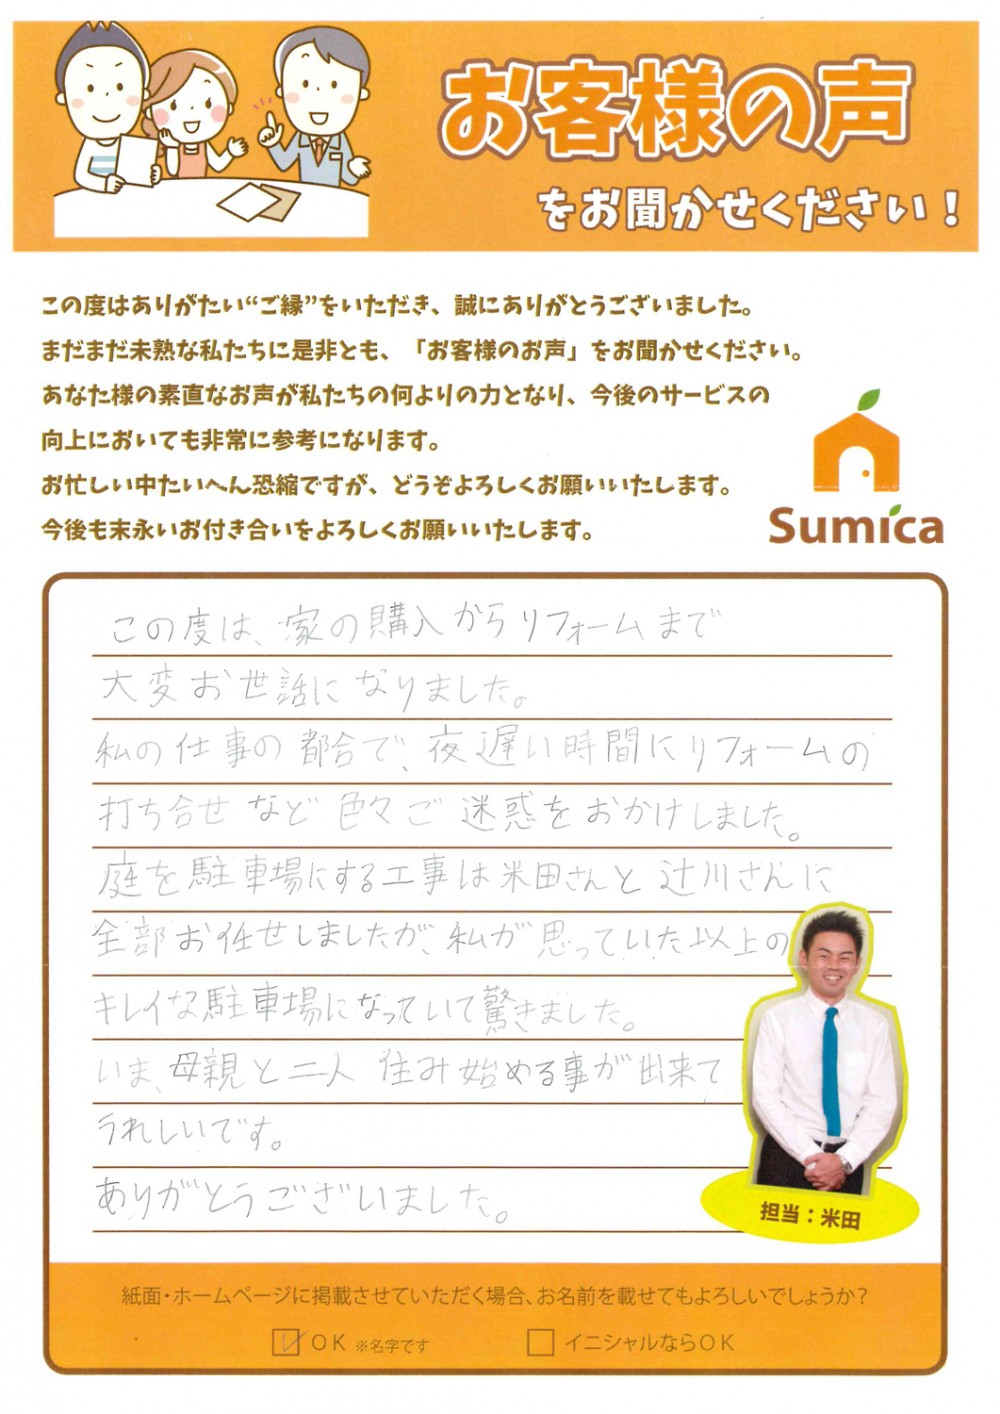 お客様の声
をお聞かせください！
この度はありがたい“ご縁”をいただき、誠にありがとうございました。
まだまだ未熟な私たちに是非とも、「お客様のお声」をお聞かせください。
あなた様の素直なお声が私たちの何よりの力となり、今後のサービスの
向上においても非常に参考になります。
お忙しい中たいへん恐縮ですが、どうぞよろしくお願いいたします。
今後も末永いお付き合いをよろしくお願いいたします。
Sumica
この度は、家の購入からリフォームまで
大変お世話になりました。
私の仕事の都合で、夜遅い時間にリフォームの
打ち合せなど色々ご迷惑をおかけしました。
庭を駐車場にする工事は米田さんと辻川さんに
全部お任せしましたが、私が思っていた以上の
キレイな駐車場になっていて驚きました。
いま、母親と二人住み始める事が出来て
うれしいです。
ありがとうございました。
担当：米田
紙面・ホームページに掲載させていただく場合、お名前を載せてもよろしいでしょうか？
OK ※名字です
イニシャルならOK